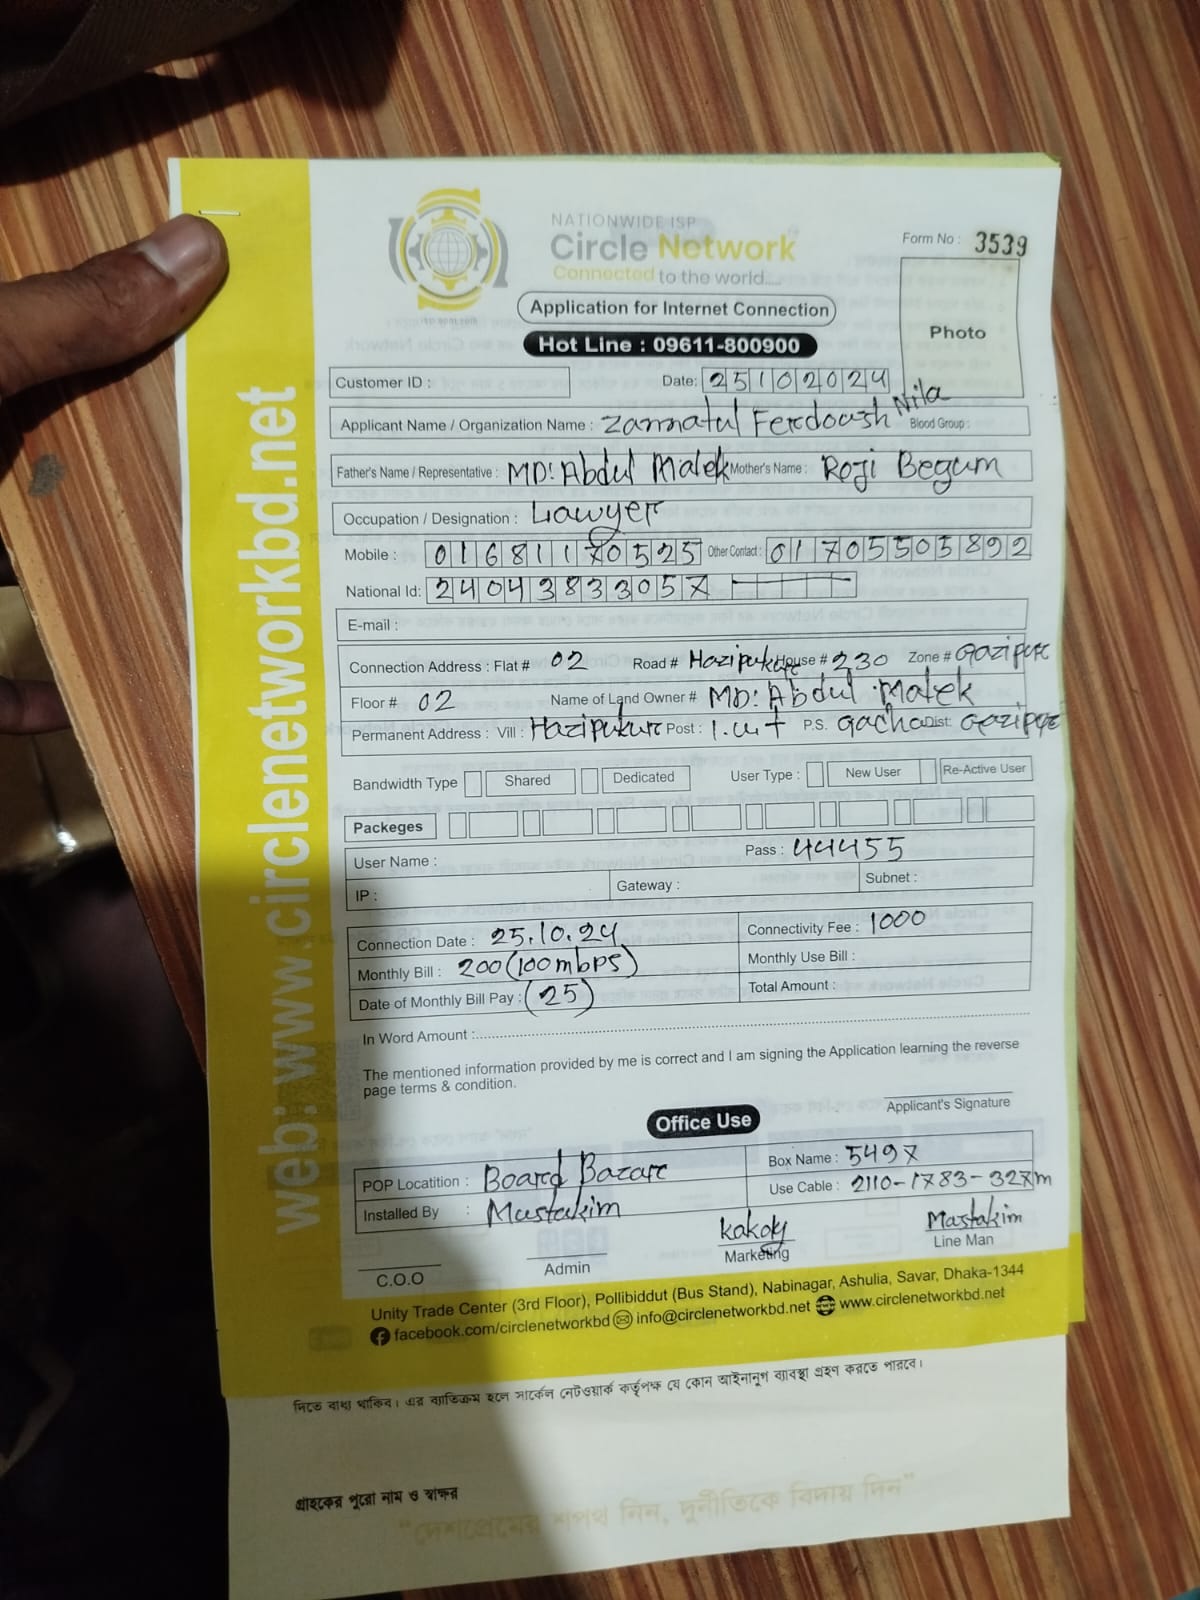 NATIONWIDE ISP
Circle Network
Connected to the world.....
Form No : 3539
Application for Internet Connection
Hot Line : 09611-800900
Photo
Customer ID :
Date: 25102024
Applicant Name / Organization Name : Zannatul Ferdoush Nila Blood Group :
Father's Name / Representative : MD: Abdul Malek Mother's Name : Roji Begum
Occupation / Designation : Lawyer
Mobile : 01681170525 Other Contact : 01705505892
National Id: 24043833057
E-mail :
Connection Address : Flat # 02 Road # Hazipukur House # 230 Zone # Gazipur
Floor # 02 Name of Land Owner # MD: Abdul Malek
Permanent Address : Vill : Hazipukur Post : I.u.t P.S. Gacha Dist: Gazipur
Bandwidth Type Shared Dedicated User Type : New User Re-Active User
Packeges
User Name : Pass : 44455
IP : Gateway : Subnet :
Connection Date : 25.10.24 Connectivity Fee : 1000
Monthly Bill : 200 (100mbps) Monthly Use Bill :
Date of Monthly Bill Pay : (25) Total Amount :
In Word Amount :
The mentioned information provided by me is correct and I am signing the Application learning the reverse
page terms & condition.
Applicant's Signature
Office Use
POP Locatition : Board Bazar Box Name : 5497
Installed By : Mustakim Use Cable : 2110-1783-327m
kakoly Mastakim
C.O.O Admin Marketing Line Man
Unity Trade Center (3rd Floor), Pollibiddut (Bus Stand), Nabinagar, Ashulia, Savar, Dhaka-1344
facebook.com/circlenetworkbd info@circlenetworkbd.net www.circlenetworkbd.net
web: www.circlenetworkbd.net
দিতে বাধ্য থাকিব। এর ব্যতিক্রম হলে সার্কেল নেটওয়ার্ক কর্তৃপক্ষ যে কোন আইনানুগ ব্যাবস্থা গ্রহণ করতে পারবে।
গ্রাহকের পুরো নাম ও স্বাক্ষর
"দেশপ্রেমের শপথ নিন, দুর্নীতিকে বিদায় দিন"